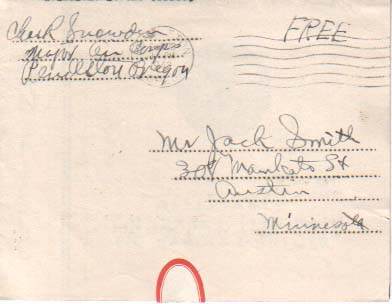 Chas R Snowden
Army Air Corps
Pendleton Oregon
FREE
Mr Jack Smith
308 Mankato St
Austin
Minnesota